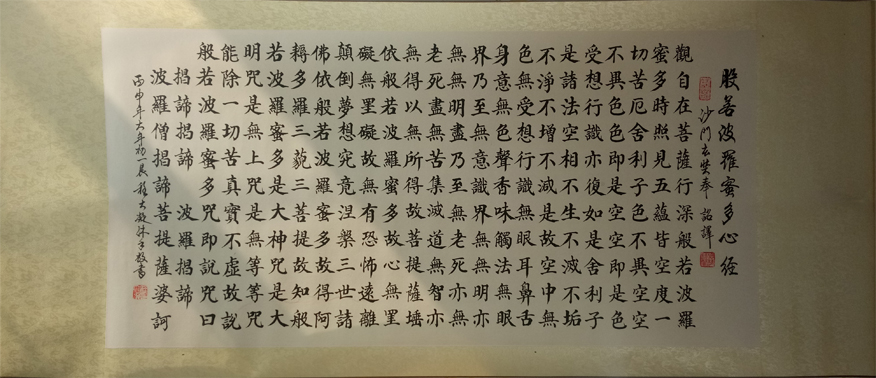 般若波羅蜜多心經
沙門玄奘奉 詔譯
觀自在菩薩行深般若波羅
蜜多時照見五蘊皆空度一
切苦厄舍利子色不異空空
不異色色即是空空即是色
受想行識亦復如是舍利子
是諸法空相不生不滅不垢
不淨不增不減是故空中無
色無受想行識無眼耳鼻舌
身意無色聲香味觸法無眼
界乃至無意識界無無明亦
無無明盡乃至無老死亦無
老死盡無苦集滅道無智亦
無得以無所得故菩提薩埵
依般若波羅蜜多故心無罣
礙無罣礙故無有恐怖遠離
顛倒夢想究竟涅槃三世諸
佛依般若波羅蜜多故得阿
耨多羅三藐三菩提故知般
若波羅蜜多是大神咒是大
明咒是無上咒是無等等咒
能除一切苦真實不虛故說
般若波羅蜜多咒即說咒曰
揭諦揭諦 波羅揭諦
波羅僧揭諦菩提薩婆訶
丙申年大年初一晨 敬書